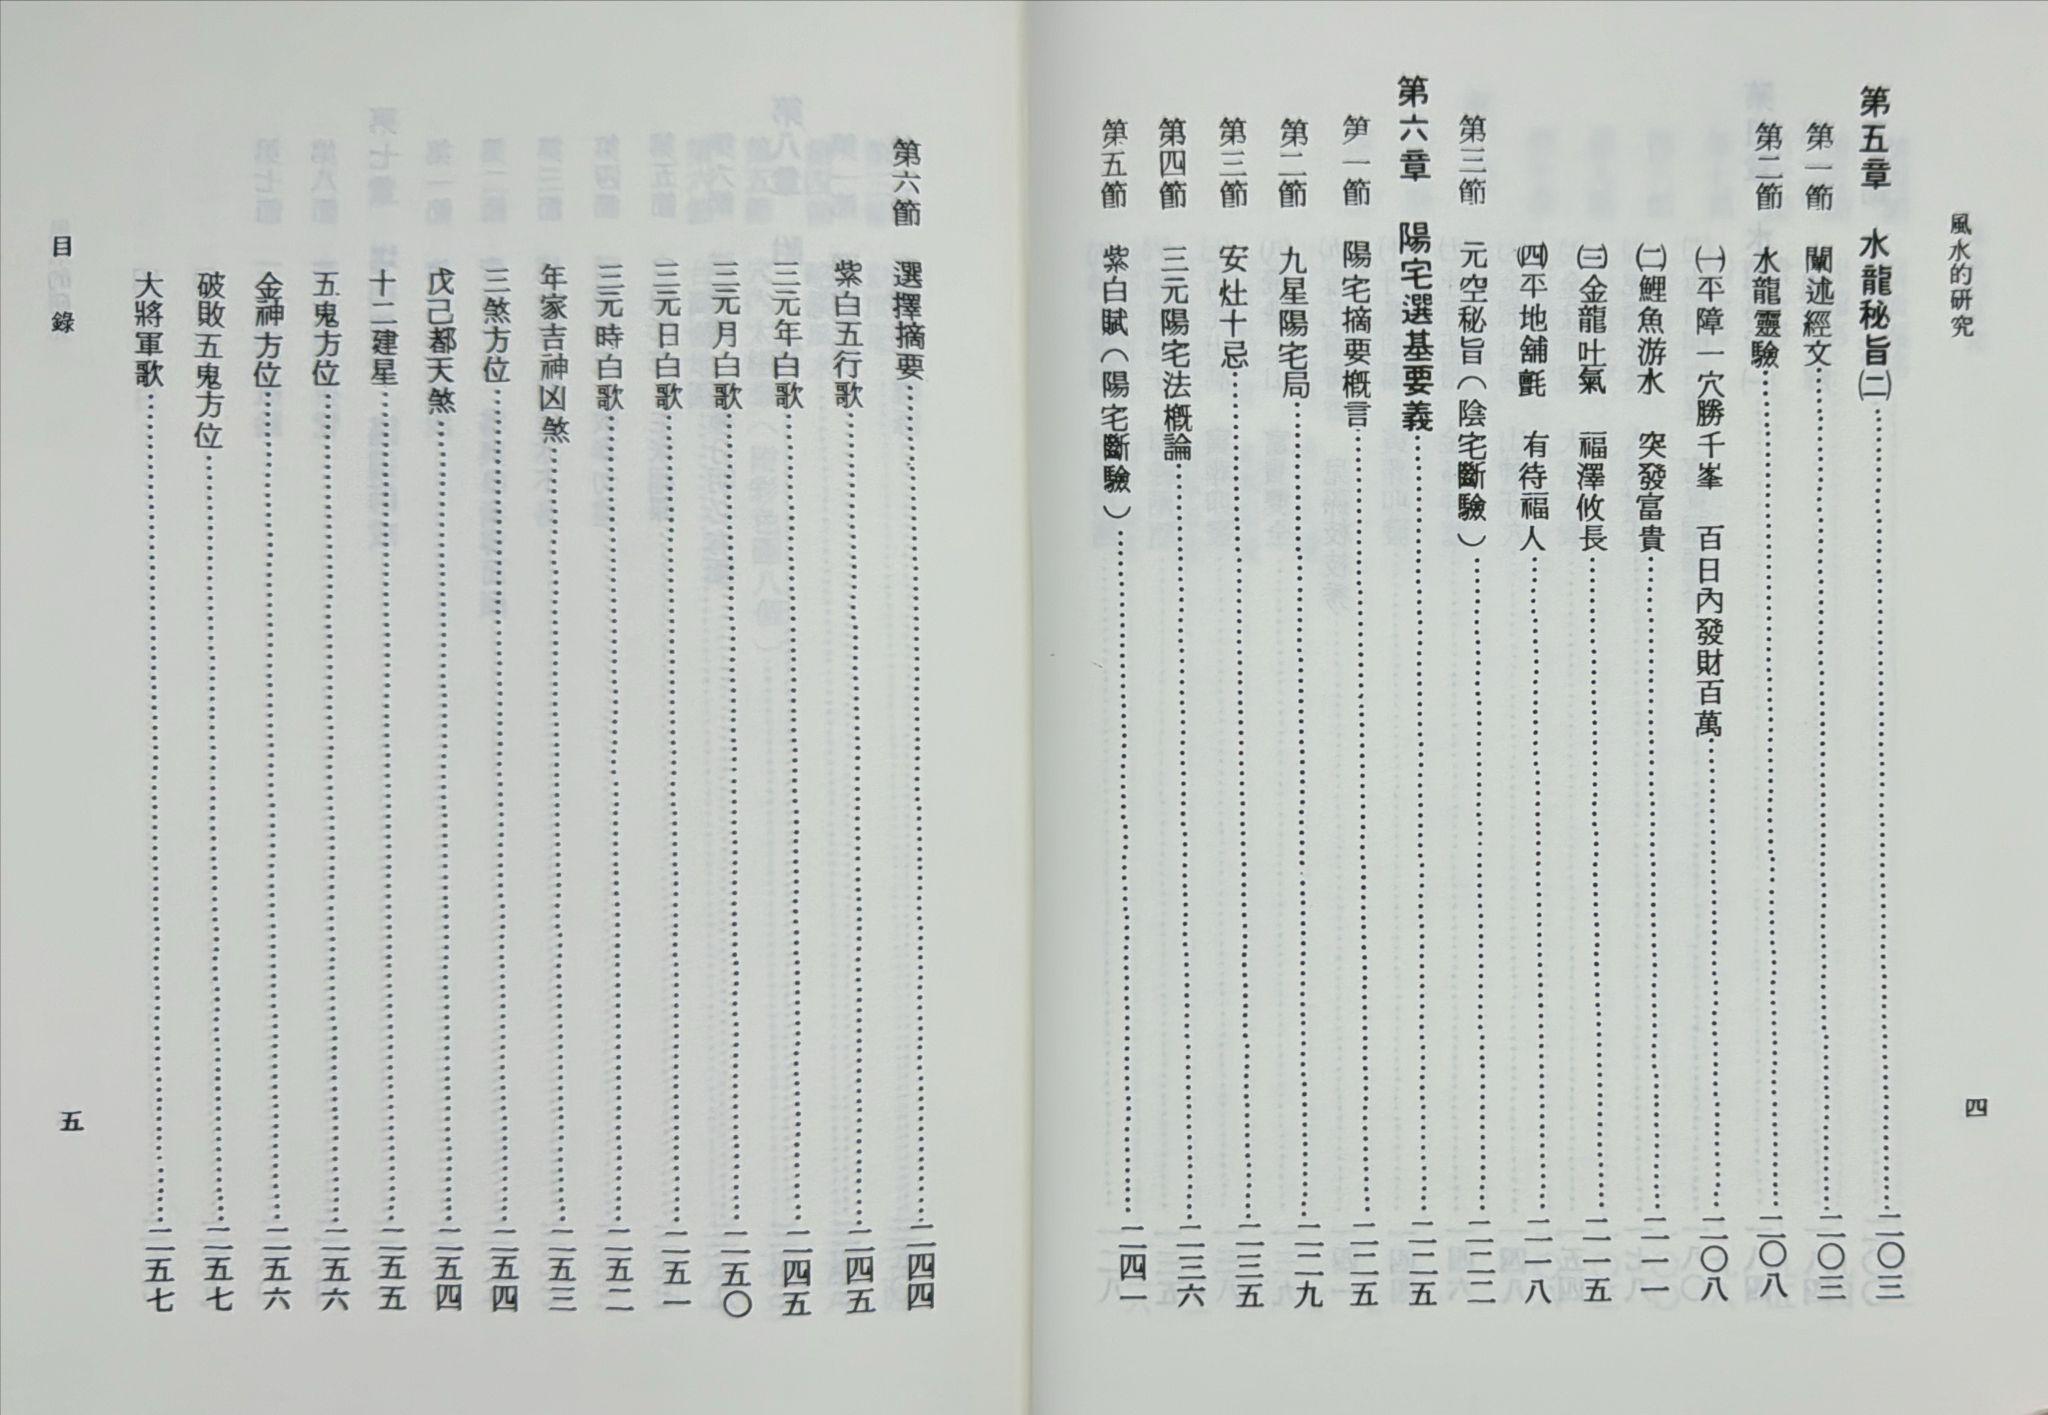 風水的研究
四
第五章　水龍秘旨㈡……二〇三
第一節　闡述經文……二〇三
第二節　水龍靈驗……二〇八
㈠平障一穴勝千峯　百日內發財百萬……二〇八
㈡鯉魚游水　突發富貴……二一一
㈢金龍吐氣　福澤攸長……二一五
㈣平地舖氈　有待福人……二一八
第三節　元空秘旨（陰宅斷驗）……二二二
第六章　陽宅選基要義……二二五
第一節　陽宅摘要概言……二二五
第二節　九星陽宅局……二二九
第三節　安灶十忌……二三五
第四節　三元陽宅法概論……二三六
第五節　紫白賦（陽宅斷驗）……二四一
第六節　選擇摘要……二四四
紫白五行歌……二四五
三元年白歌……二四五
三元月白歌……二五〇
三元日白歌……二五一
三元時白歌……二五二
年家吉神凶煞……二五三
三煞方位……二五四
戊己都天煞……二五四
十二建星……二五五
五鬼方位……二五六
金神方位……二五六
破敗五鬼方位……二五七
大將軍歌……二五七
目錄
五